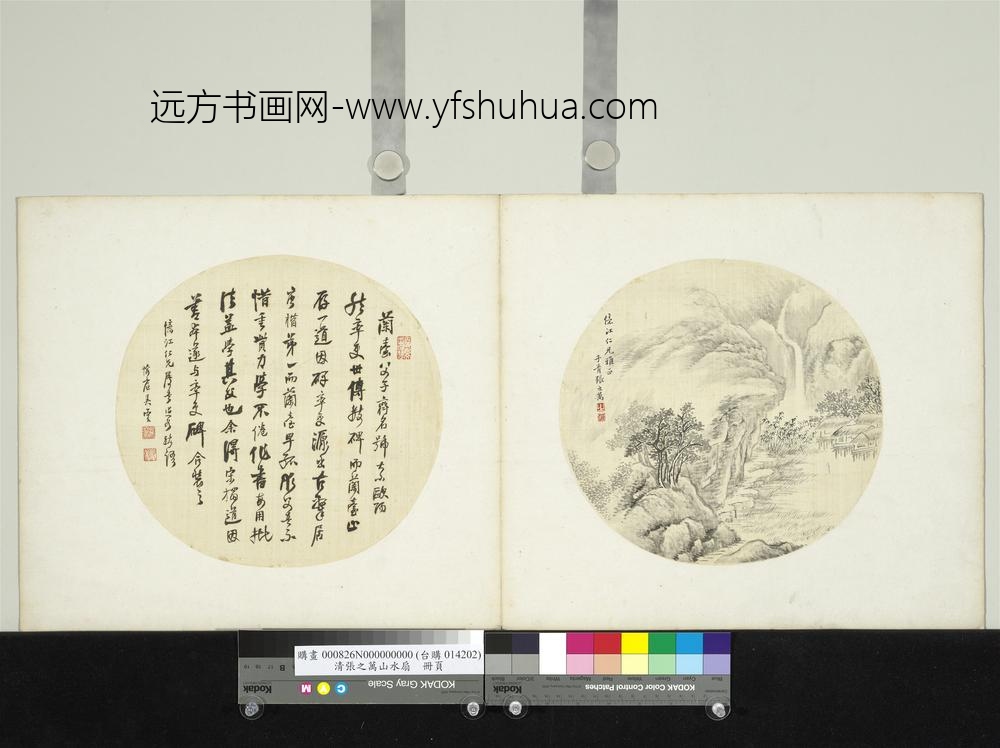 远方书画网-www.yfshuhua.com
蘭臺公子齊名號 歐陽
然率更世傳數碑而蘭臺止
存一道因碑率更源出古隸居
唐楷第一而蘭臺早孤
惜重貲力學不倦
法蓋學其父也余得宋搨道因
善本遂與率更碑合裝之
憶江仁兄屬書
愉庭吳雲
憶江仁兄雅正
子青張之萬
購畫 000826N000000000 (台購 014202)
清張之萬山水扇 冊頁
KODAK Gray Scale
Kodak
C
Y
M
B
KODAK Color Control Patches
Kodak
Blue
Cyan
Green
Yellow
Red
Magenta
White
3/Color
Black